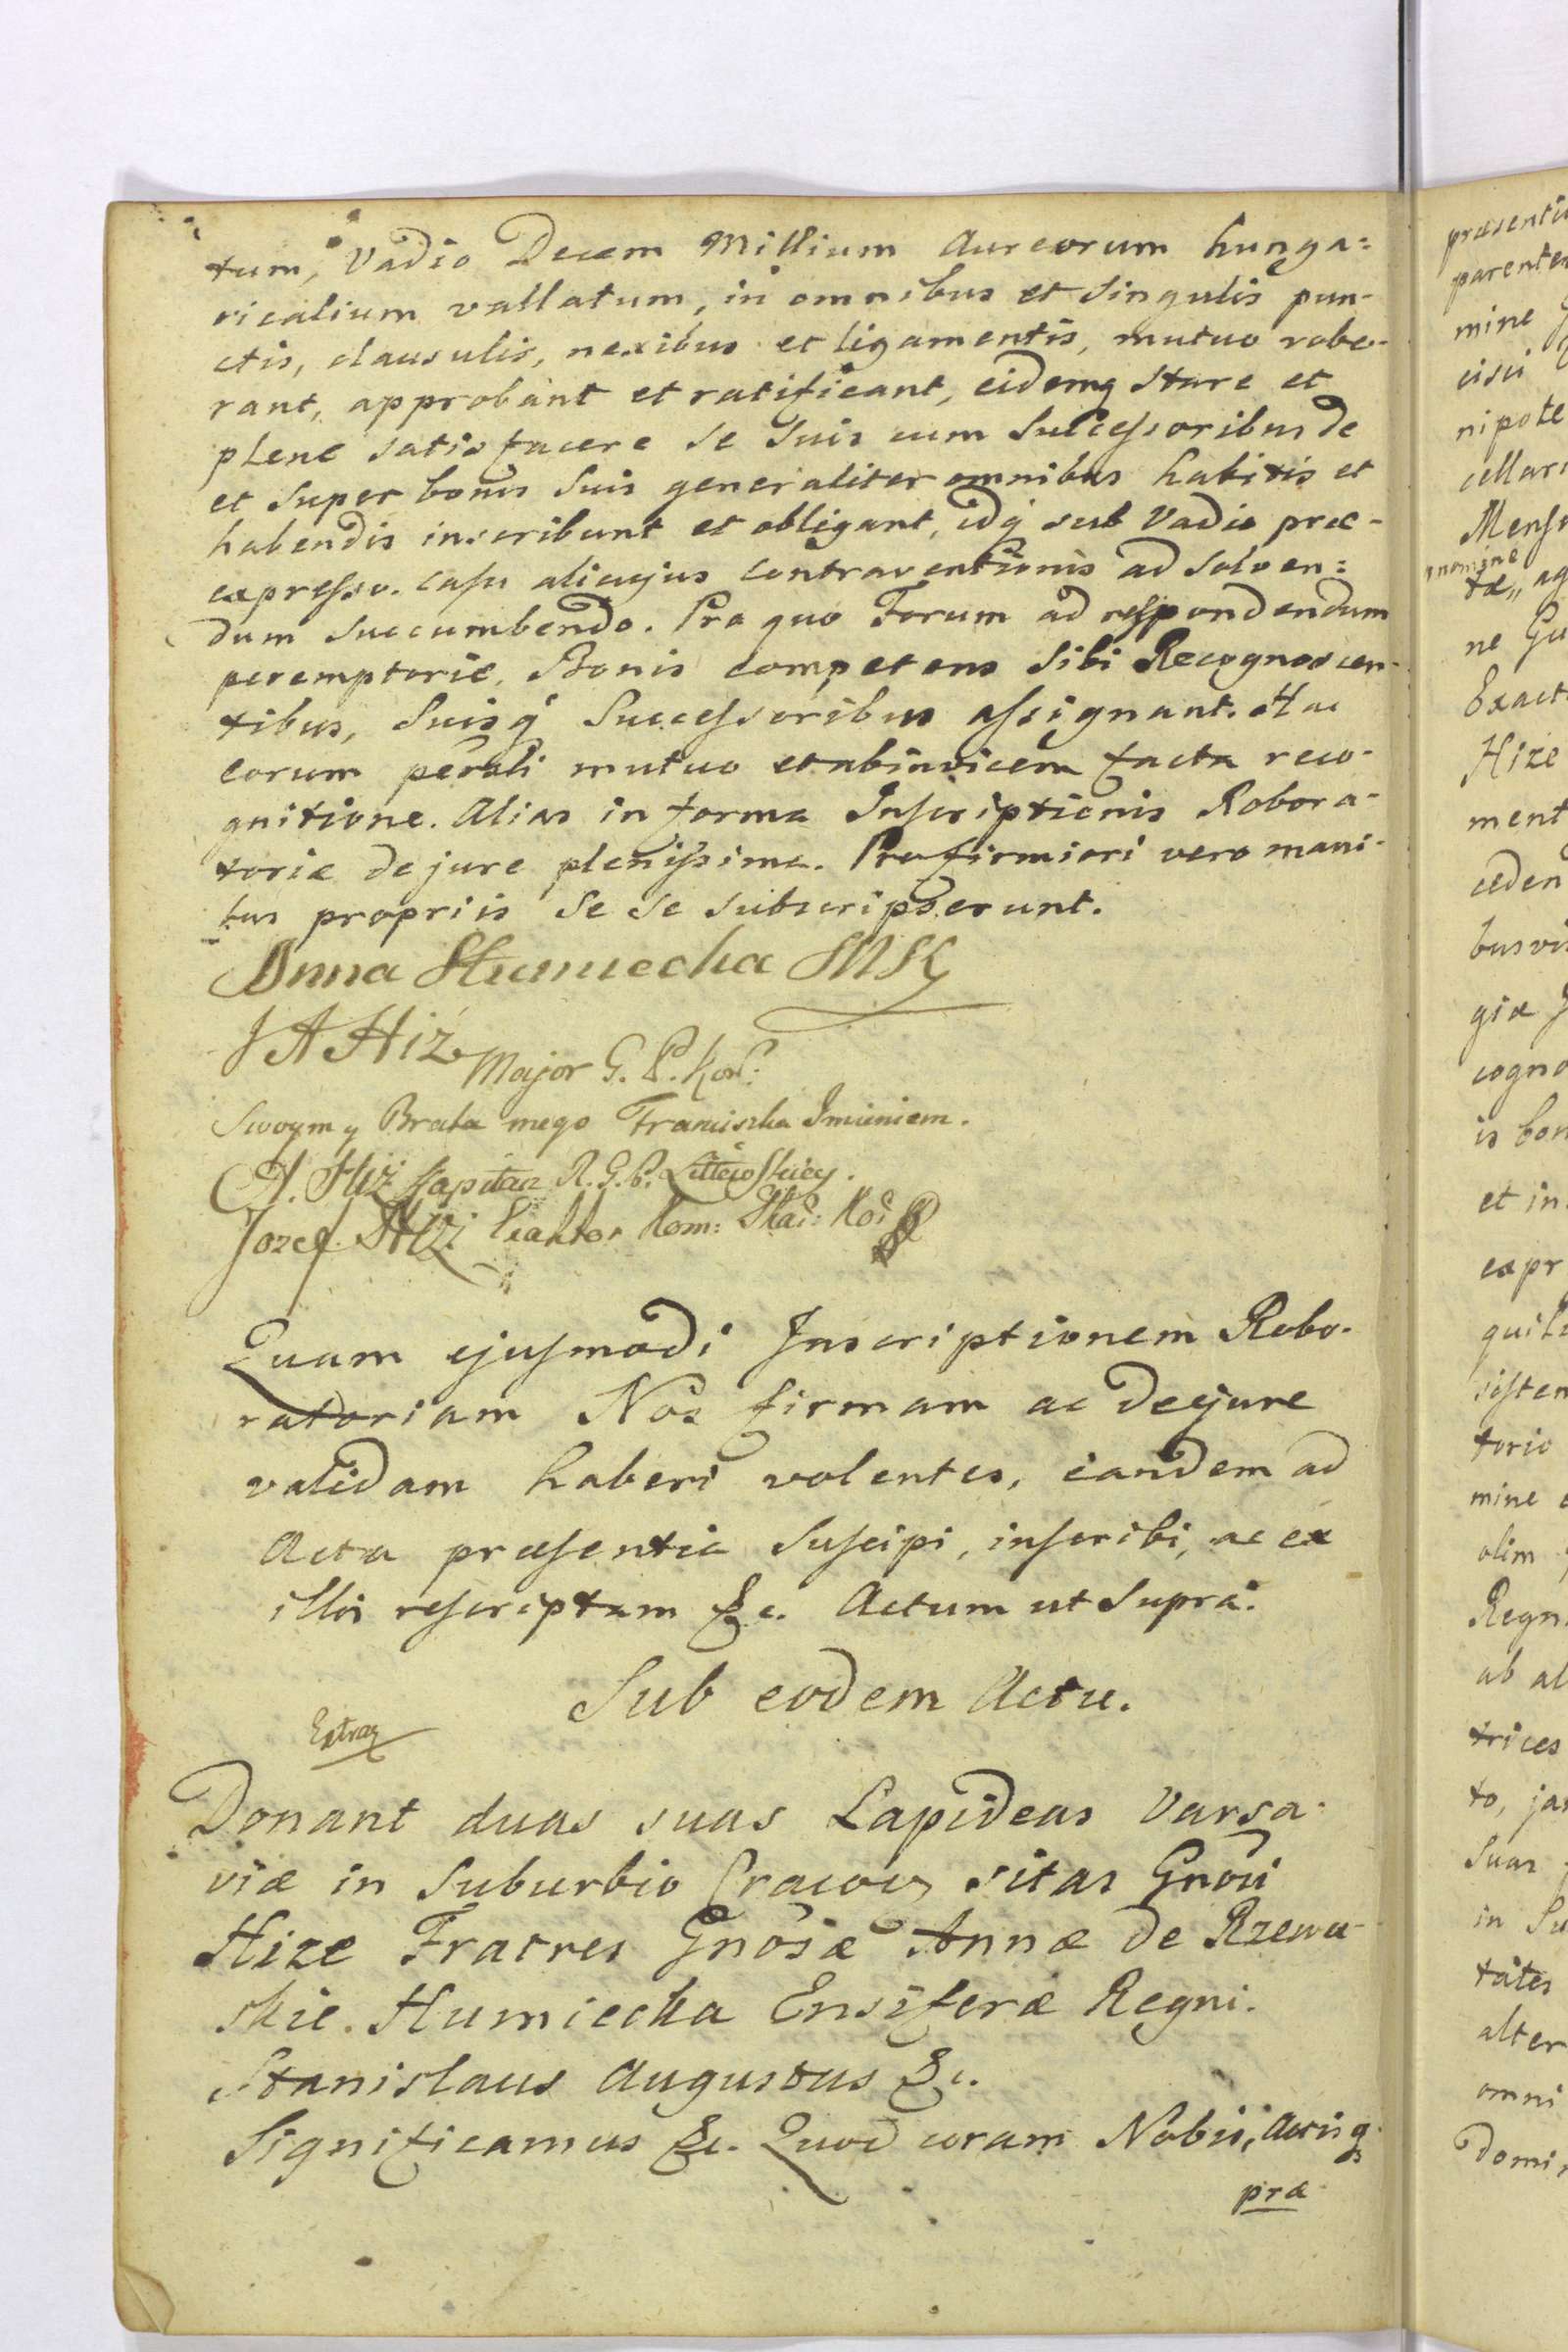 tum, Vadio Decem Millium Aureorum hunga=
ricalium vallatum, in omnibus et Singulis pun-
ctis, clausulis, nexibus et ligamentis, mutuo robo-
rant, approbant et ratificant, eidemq stare et
plene satisfacere se suis cum Successoribus de
et Super bonis Suis generaliter omnibus habitis et
habendis inscribunt et obligant, idq sub Vadio præ-
expresso. casu alicujus contraventionis ad solven=
dum succumbendo. Pro quo Forum ad respondendum
peremptorie, Bonis competens Sibi Recognoscen-
tibus, Suisq Successoribus assignant. Hac
eorum perali mutuo et abinvicem facta reco-
gnitione. Alias in forma Inscriptionis Robora-
toriæ de jure plenissima. Pro firmiori vero mani-
bus propriis se se subscripserunt.
Anna Humiecka MK
J A Hiż Major G. P. Kor:
Swoym y Brata mego Franciszka Imieniem.
A. Hiż Kapitan R. G. P. Littewskiey.
Jozef Hiż Kom: Skar: Ko:
Quam ejusmodi Inscriptionem Robo-
ratoriam Nos firmam ac de jure
validam haberi volentes, eandem ad
Acta præsentia Suscipi, inscribi, ac ex
illis rescriptum &c. Actum ut Supra.
Sub eodem Actu.
Extrax
Donant duas suas Lapideas Varsa-
viæ in Suburbio Cracov sitas Gnosi
Hize Fratres Gnosæ Annæ de Rzewu-
skie. Humiecka Ensiferæ Regni.
Stanislaus Augustus &c.
Significamus &c. Quod coram Nobis, Actisq
præ
præsenti
parente
mine
cisci
nipote
cellar
Mens
nomine
tæ,, ag
ne Gu
Exact
Hize
ment
ceden
busvi
giæ
cogno
is bon
et in
expr
quil
sisten
torio
mine
olim
Regn
ab al
trices
to, ja
Suas
in Su
tates
alter
omni
Domi